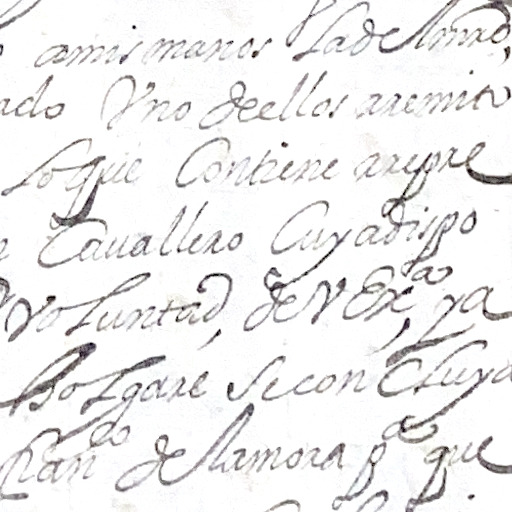 amis manos Y la del Mrd
ado Vno deellos rremito
Lo que Contiene rrepre
Cauallero Cuya dispo
Voluntad, de V Exa, ya
Holgare se concluya
de Zamora pa que